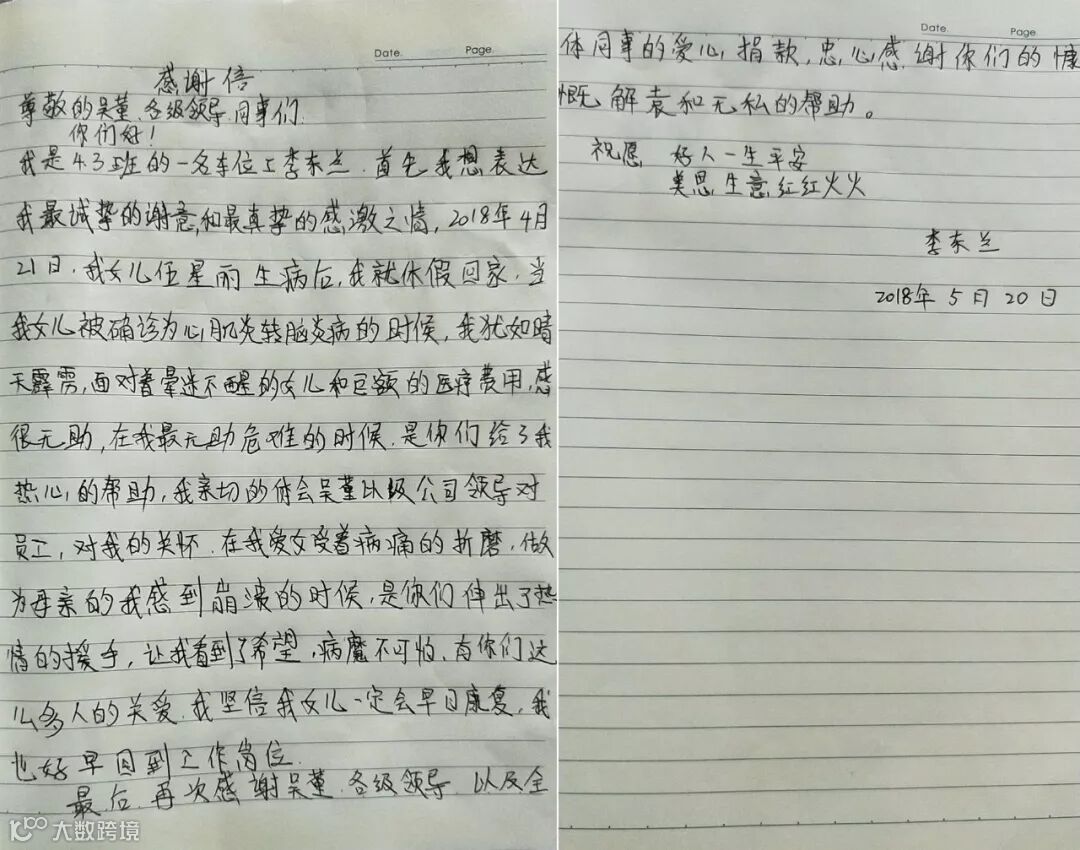 Date. Page.
感谢信
尊敬的吴董、各级领导、同事们
你们好!
我是43班的一名车位工李东兰、首先我想表达
我最诚挚的谢意,和最真挚的感激之情,2018年4月
21日,我女儿伍星丽生病后,我就休假回家,当
我女儿被确诊为心肌炎转脑炎病的时候,我犹如晴
天霹雳,面对着晕迷不醒的女儿和巨额的医疗费用,感
很无助,在我最无助危难的时候,是你们给了我
热心的帮助,我亲切的体会吴董以级公司领导对
员工,对我的关怀、在我爱女受着病痛的折磨,做
为母亲的我感到崩溃的时候,是你们伸出了热
情的援手,让我看到了希望,病魔不可怕、有你们这
么多人的关爱、我坚信我女儿一定会早日康复,我
也好早回到工作岗位.
最后、再次感谢吴董、各级领导、以及全
大数跨境
Date. Page
体同事的爱心捐款,忠心感谢你们的慷
慨解袁和无私的帮助。
祝愿 好人一生平安
美思生意红红火火
李东兰
2018年5月20日